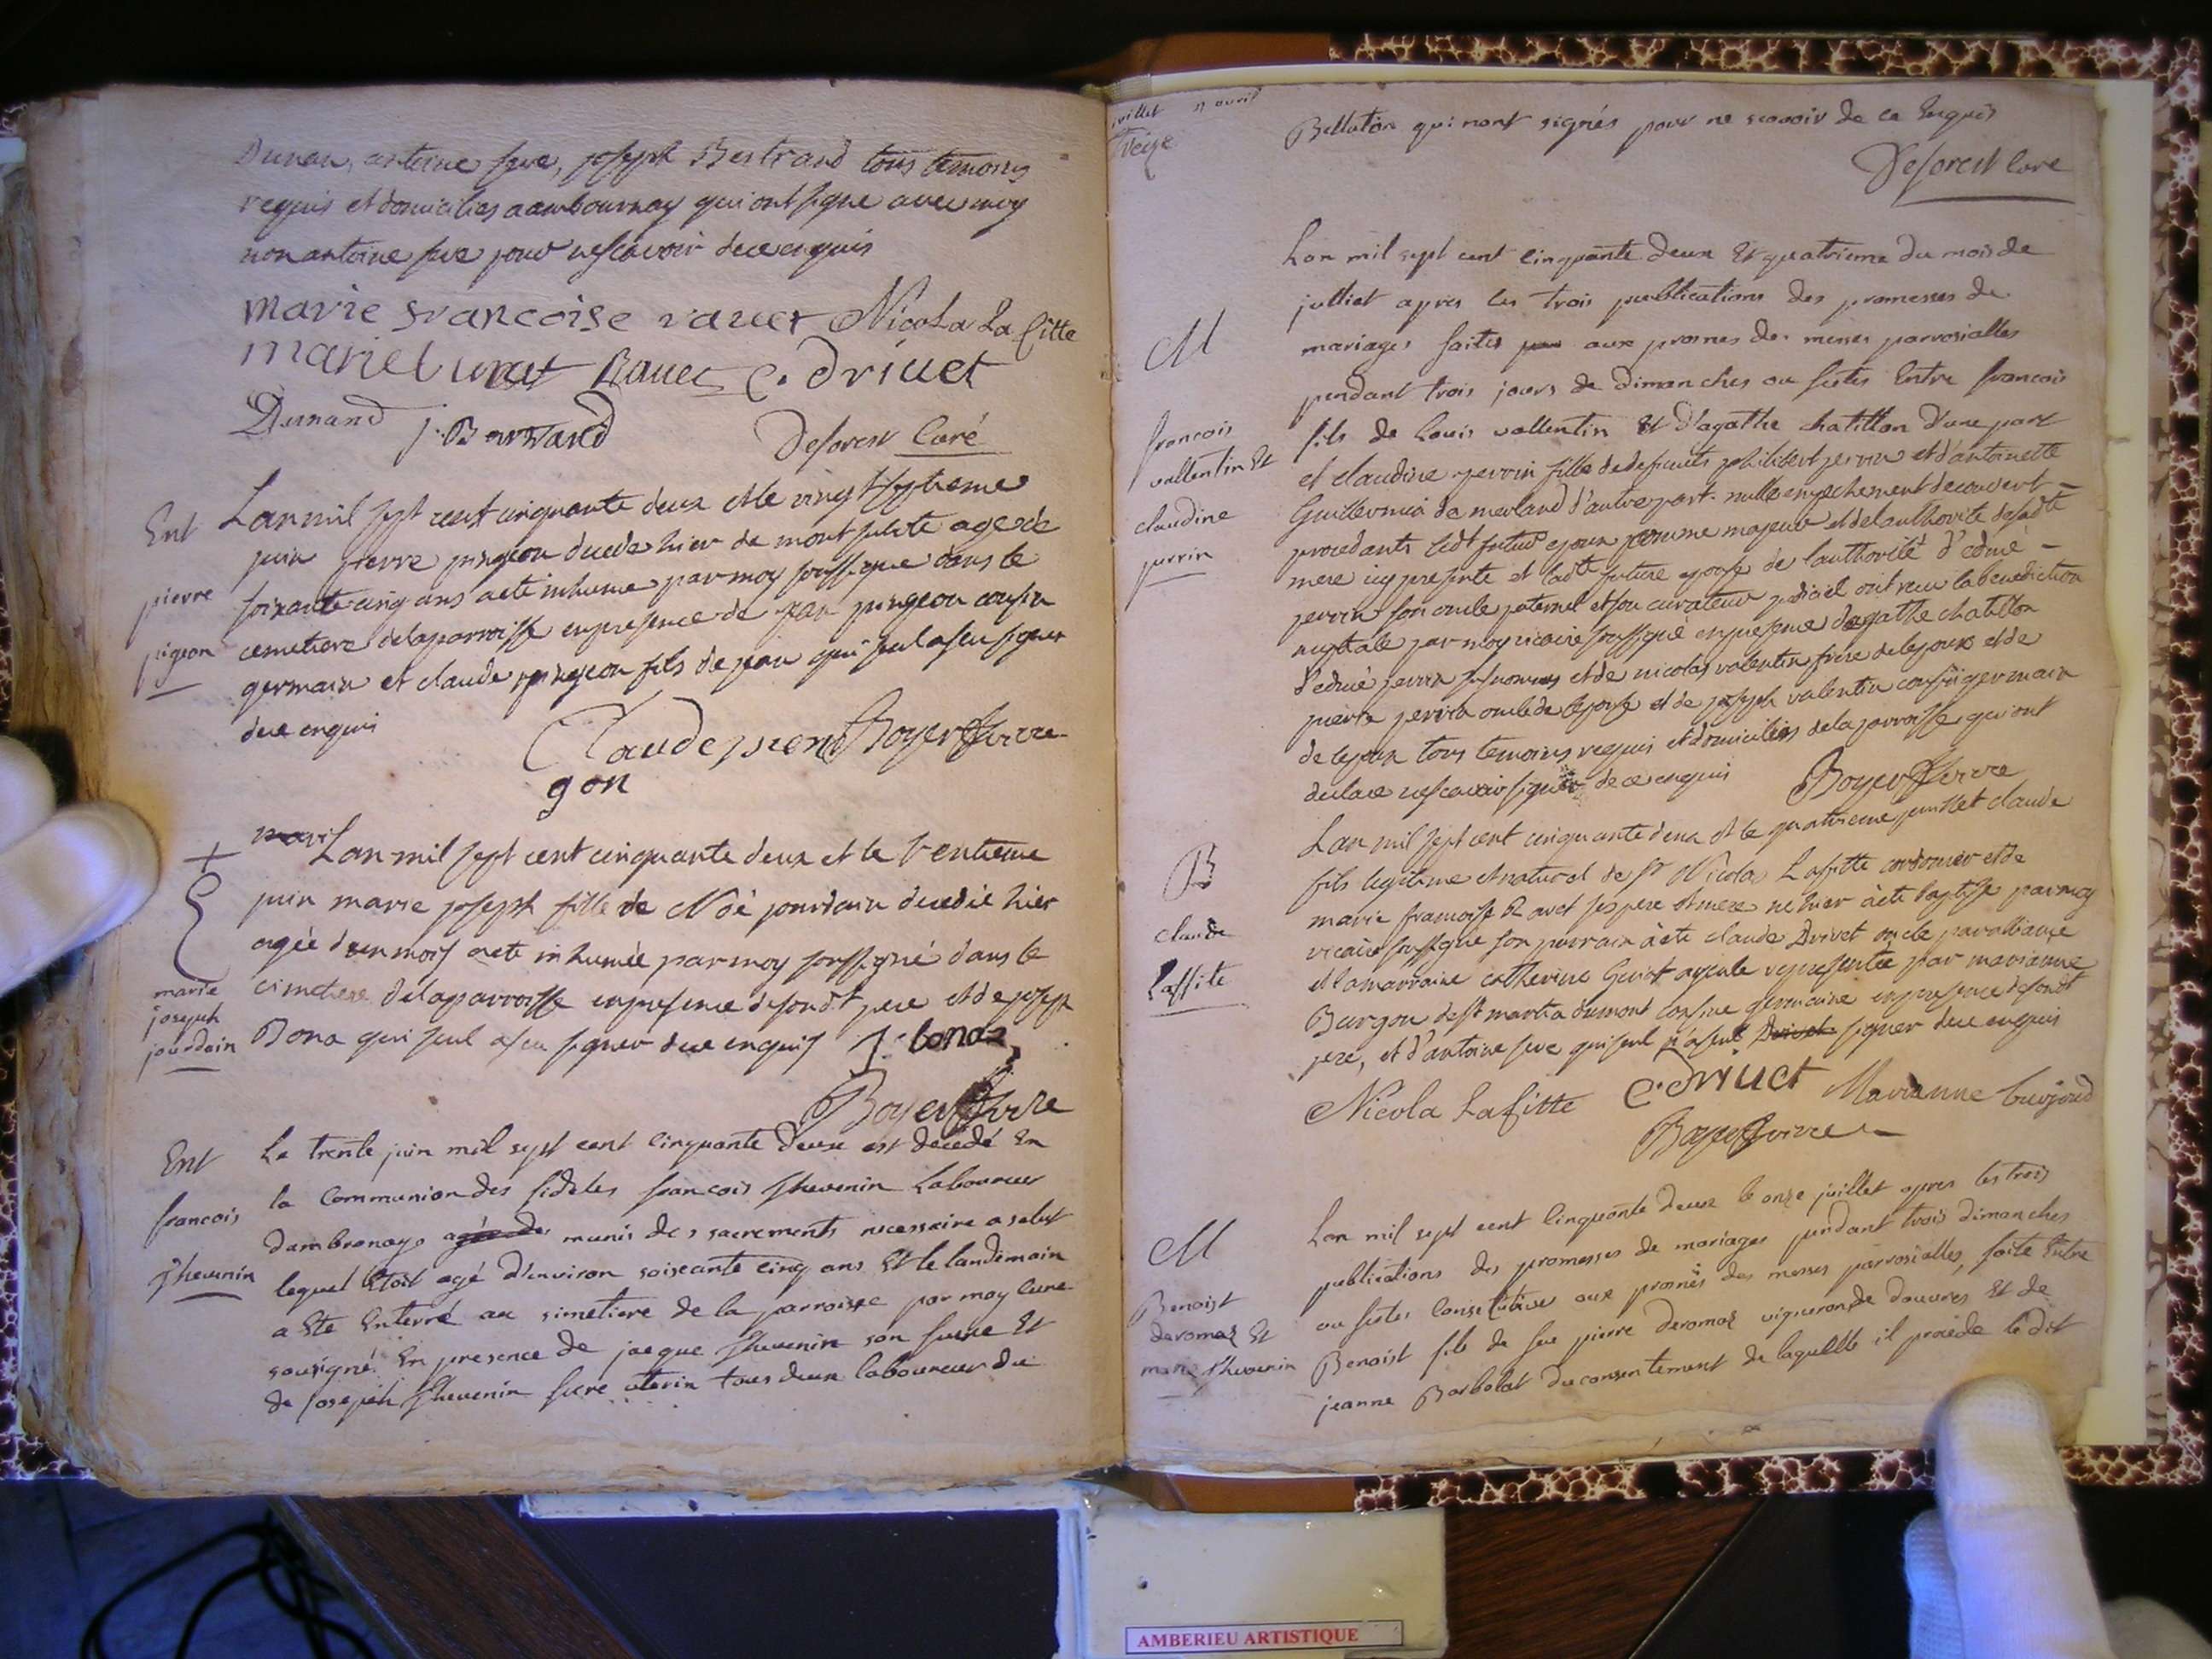 Dunan, antoine seve, joseph Bertrand tous temoins
requis et domicilies a ambournay qui ont signe avec moy
non antoine seve pour ne scavoir de ce enquis
marie francoise ravet Nicola La fitte
marie Ravet C. drivet
Dunand j. Bertrand Deforest Curé
Ent
pierre
pigeon
Lan mil sept cent cinquante deux et le vingt septieme
juin pierre pingeon decede hier de mont age de
soixante cinq ans a ete inhume par moy soussigne dans le
cemetiere de la parroisse en presence de jean pingeon cousin
germain et claude pingeon fils de jean qui seul a scu signer
de ce enquis
Claude pion Boyer
gon
+
marie
joseph
jourdain
Lan mil sept cent cinquante deux et le trentieme
juin marie joseph fille de Noé jourdain decedée hier
agée d'un mois a ete inhumée par moy soussigné dans le
cimetiere de la parroisse en presence de son dt pere et de joseph
Bona qui seul a scu signer de ce enquis J. bona
Boyer
Ent
francois
thevenin
Le trente juin mil sept cent cinquante deux est decedé En
la Communion des fideles francois thevenin Laboureur
dambronay agé de munis des sacrements necessaire a salut
lequel Etoit agé d'environ soiscante cinq ans Et le landemain
a Ete Enterré au simetiere de la parroisse par moy Cure
sousigné En presence de jacque thevenin son frere Et
de joseph thevenin frere uterin tous deux laboureur du
juillet
Belluton qui nont signés pour ne scavoir de ce Enquis
Deforest Cure
M
francois
vallentin Et
claudine
perrin
Lan mil sept cent cinquante deux Et quatrieme du mois de
julliet apres les trois publications des promesses de
mariages faites par aux prosnes des messes parrosialles
pendant trois jours de dimanches ou festes Entre francois
fils de Louis vallentin Et d'agathe chatillon d'une part
et claudine perrin fille de defeunts philibert perrin et d'antoinette
Guillermin de merland d'autre part. nulle empechement decouvert –
procedants ledt futur epoux comme majeur et de lauthorite de sadte
mere icy presente et ladte future epouse de l'authorité d'edmé –
perrin son oncle paternel et son curateur judiciel ont recu la benediction
nuptiale par moy vicaire soussigné en presence dagathe chatillon
d'edmé perrin susnommes et de nicolas valentin frere de lepoux et de
pierre perrin oncle de lepouse et de joseph valentin cousin germain
de lepoux tous temoins requis et domicilies de la parroisse qui ont
declare ne scavoir signer de ce enquis Boyer
B
claude
Laffite
Lan mil sept cent cinquante deux et le quatrieme juillet claude
fils legitime et naturel de sr Nicola Lafitte cordonier et de
marie francoise Ravet ses pere et mere ne hier à ete baptise par moy
vicaire soussigne son parrain à ete claude Drivet oncle par alliance
et la marraine catherine Guiot ayeule representée par marianne
Burgon de st martin du mont cousine germaine en presence de son dt
pere, et d'antoine seve qui seul n'a sceu Drivet signer de ce enquis
Nicola Lafitte C. drivet Marianne burjoud
Boyer
M
Benoist
deromaz Et
marie thevenin
Lan mil sept cent cinquante deux le onze juillet apres les trois
publications des promesses de mariages pendant trois dimanches
ou festes Consecutives aux prosnes des messes parrosialles, faite Entre
Benoist fils de feu pierre deromaz vigneron de douvres Et de
jeanne Barbolat du consentement de laquelle il procede le dit
AMBERIEU ARTISTIQUE